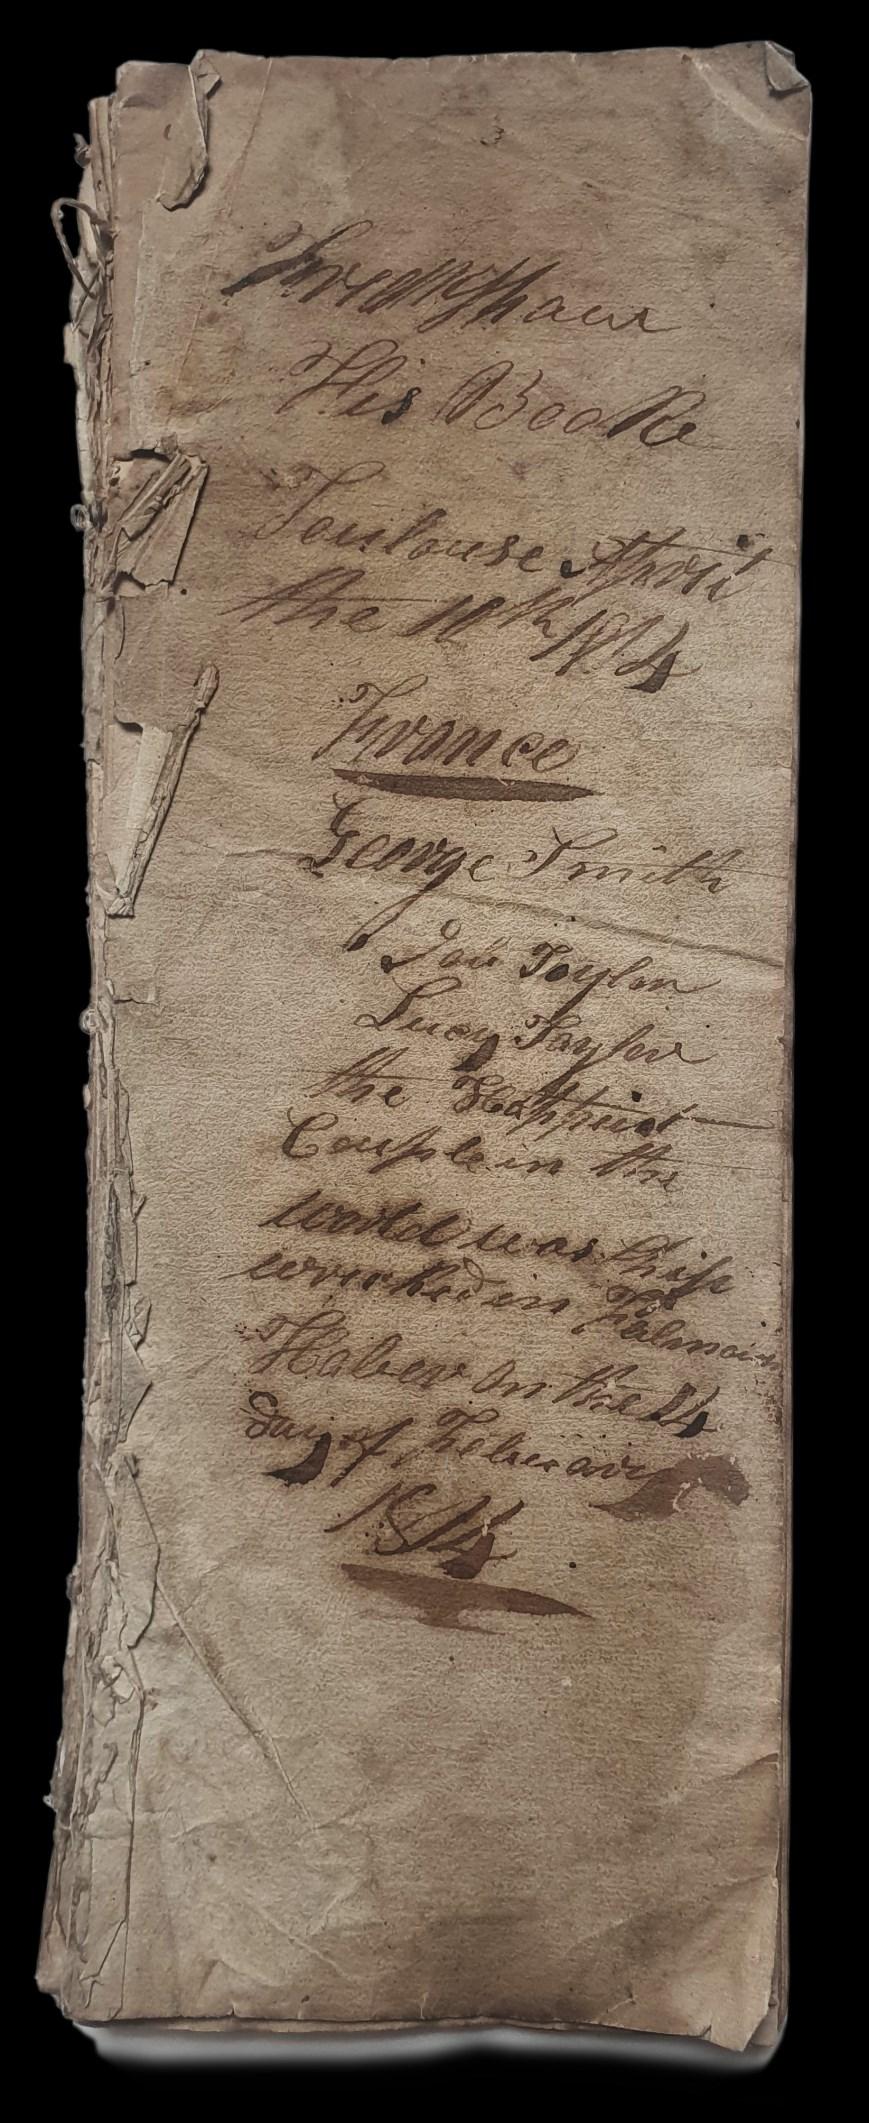 His Booke
Toulouse April
the 10th 1814
France
George Smith
Job Taylor
Lucy Taylor
the Happiest
Couple in the
World was Ship
wrecked in Falmouth
Haber on the 14
day of February
1814